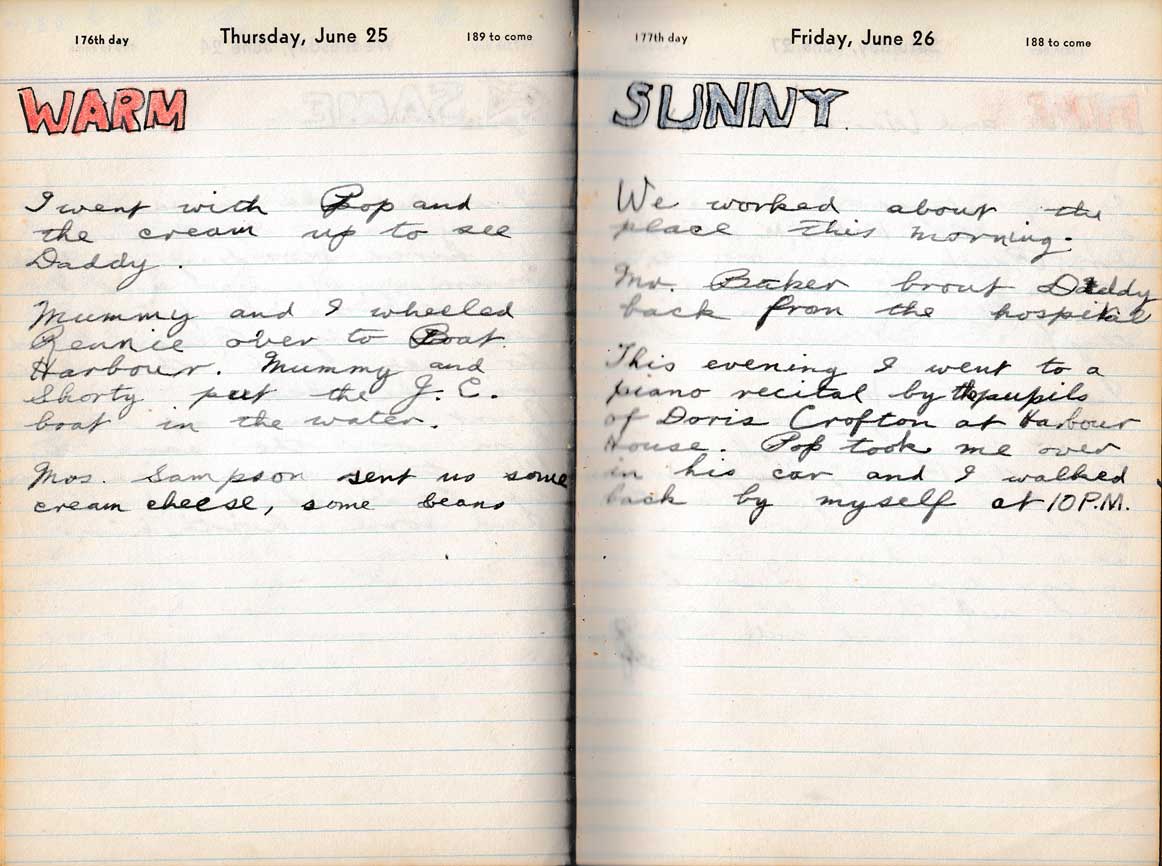 176th day Thursday, June 25 189 to come
WARM
I went with Pop and
the cream up to see
Daddy.
Mummy and I wheeled
Rennie over to Boat
Harbour. Mummy and
Shorty put the J. E.
boat in the water.
Mrs. Sampson sent us some
cream cheese, some beans
177th day Friday, June 26 188 to come
SUNNY.
We worked about the
place this morning.
Mr. Baker brout Daddy
back from the hospital
This evening I went to a
piano recital by the pupils
of Doris Crofton at Harbour
House. Pop took me over
in his car and I walked
back by myself at 10 P.M.